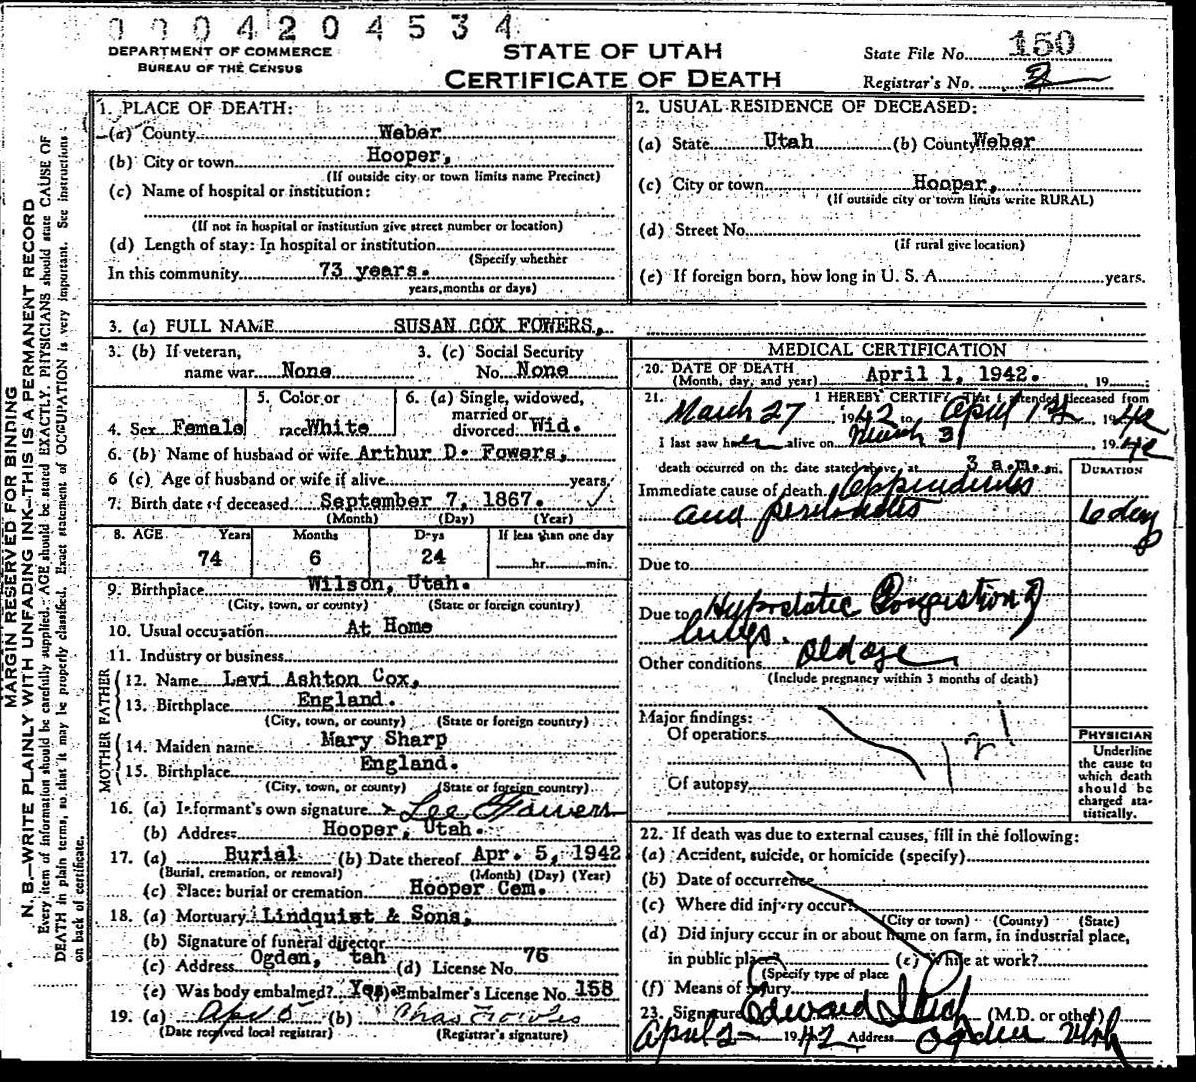 0004204534
DEPARTMENT OF COMMERCE
BUREAU OF THE CENSUS
STATE OF UTAH
CERTIFICATE OF DEATH
State File No. 150
Registrar's No.
MARGIN RESERVED FOR BINDING
N. B.—WRITE PLAINLY WITH UNFADING INK—THIS IS A PERMANENT RECORD
Every item of information should be carefully supplied. AGE should be stated EXACTLY. PHYSICIANS should state CAUSE OF
DEATH in plain terms, so that it may be properly classified. Exact statement of OCCUPATION is very important. See instructions
on back of certificate.
1. PLACE OF DEATH:
(a) County Weber
(b) City or town Hooper,
(If outside city or town limits name Precinct)
(c) Name of hospital or institution:
(If not in hospital or institution give street number or location)
(d) Length of stay: In hospital or institution
(Specify whether
In this community 73 years.
years, months or days)
2. USUAL RESIDENCE OF DECEASED:
(a) State Utah (b) County Weber
(c) City or town Hooper,
(If outside city or town limits write RURAL)
(d) Street No.
(If rural give location)
(e) If foreign born, how long in U. S. A. years.
3. (a) FULL NAME SUSAN COX FOWERS,
3. (b) If veteran, 3. (c) Social Security
name war None No. None
5. Color or 6. (a) Single, widowed,
married or
4. Sex Female race White divorced Wid.
6. (b) Name of husband or wife Arthur D. Fowers,
6 (c) Age of husband or wife if alive years.
7. Birth date of deceased September 7, 1867.
(Month) (Day) (Year)
8. AGE Years Months Days If less than one day
74 6 24 hr. min.
9. Birthplace Wilson, Utah.
(City, town, or county) (State or foreign country)
10. Usual occupation At Home
11. Industry or business
FATHER
12. Name Levi Ashton Cox,
13. Birthplace England.
(City, town, or county) (State or foreign country)
MOTHER
14. Maiden name Mary Sharp
15. Birthplace England.
(City, town, or county) (State or foreign country)
16. (a) Informant's own signature Lee Fowers
(b) Address Hooper, Utah.
17. (a) Burial (b) Date thereof Apr. 5, 1942
(Burial, cremation, or removal) (Month) (Day) (Year)
(c) Place: burial or cremation Hooper Cem.
18. (a) Mortuary Lindquist & Sons,
(b) Signature of funeral director
(c) Address Ogden, tah (d) License No. 76
(e) Was body embalmed? Yes (f) Embalmer's License No. 158
19. (a) Apr 6 (b) Chas Fowles
(Date received local registrar) (Registrar's signature)
MEDICAL CERTIFICATION
20. DATE OF DEATH
(Month, day, and year) April 1, 1942. , 19
21. I HEREBY CERTIFY, That I attended deceased from
March 27 1942 to April 1st 1942
I last saw her alive on March 31 1942
death occurred on the date stated above, at 3 a.m. m.
DURATION
Immediate cause of death Appendicitis
and peritonitis 6 days
Due to
Due to Hypostatic Congestion of
lungs.
Other conditions Old age
(Include pregnancy within 3 months of death)
Major findings:
Of operations
Of autopsy
121
PHYSICIAN
Underline
the cause to
which death
should be
charged sta-
tistically.
22. If death was due to external causes, fill in the following:
(a) Accident, suicide, or homicide (specify)
(b) Date of occurrence
(c) Where did injury occur?
(City or town) (County) (State)
(d) Did injury occur in or about home on farm, in industrial place,
in public place? (e) While at work?
(Specify type of place
(f) Means of injury
23. Signature Edward I Rich (M.D. or other)
April 2 1942 Address Ogden Utah